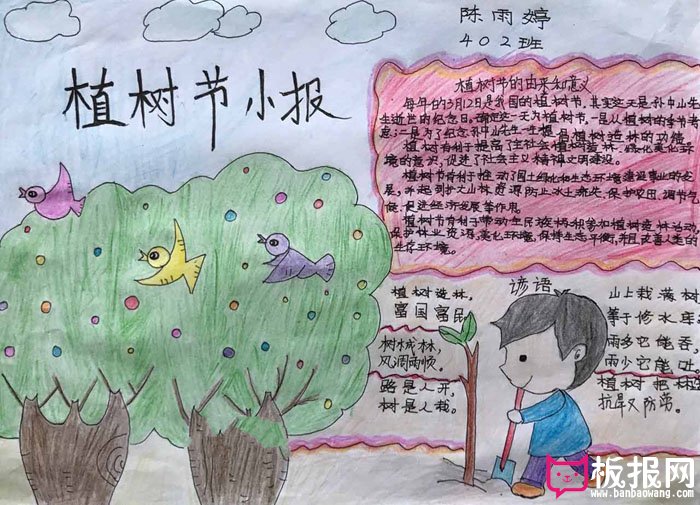 陈雨婷
402班
植树节小报
植树节的由来和意义
每年的3月12日是我国的植树节,其实这天是孙中山先
生逝世的纪念日。确定这一天为植树节,一是从植树的季节考
虑;二是为了纪念孙中山先生
倡植树造林的功绩。
植树有利于提高了全社会植树造林、绿化美化环
境的意识,促进了社会主义精神文明建设。
植树节有利于推动了国土绿化和生态环境建设事业的发
展,并起到护大山林资源防止水土流失、保护农田、调节气
候、促进经济发展等作用。
植树节有利于带动全民族积参和植树造林活动,
保护林业资源,美化环境,保持生态平衡,并且改善人类的
生存环境。
谚语
植树造林,
富国富民。
树成林,
风调雨顺。
路是人开,
树是人栽。
山上栽满树
等于修水库
雨多它能吞,
雨少它能吐。
植树把林
抗旱又防涝。
板报网
www.banbaowang.com